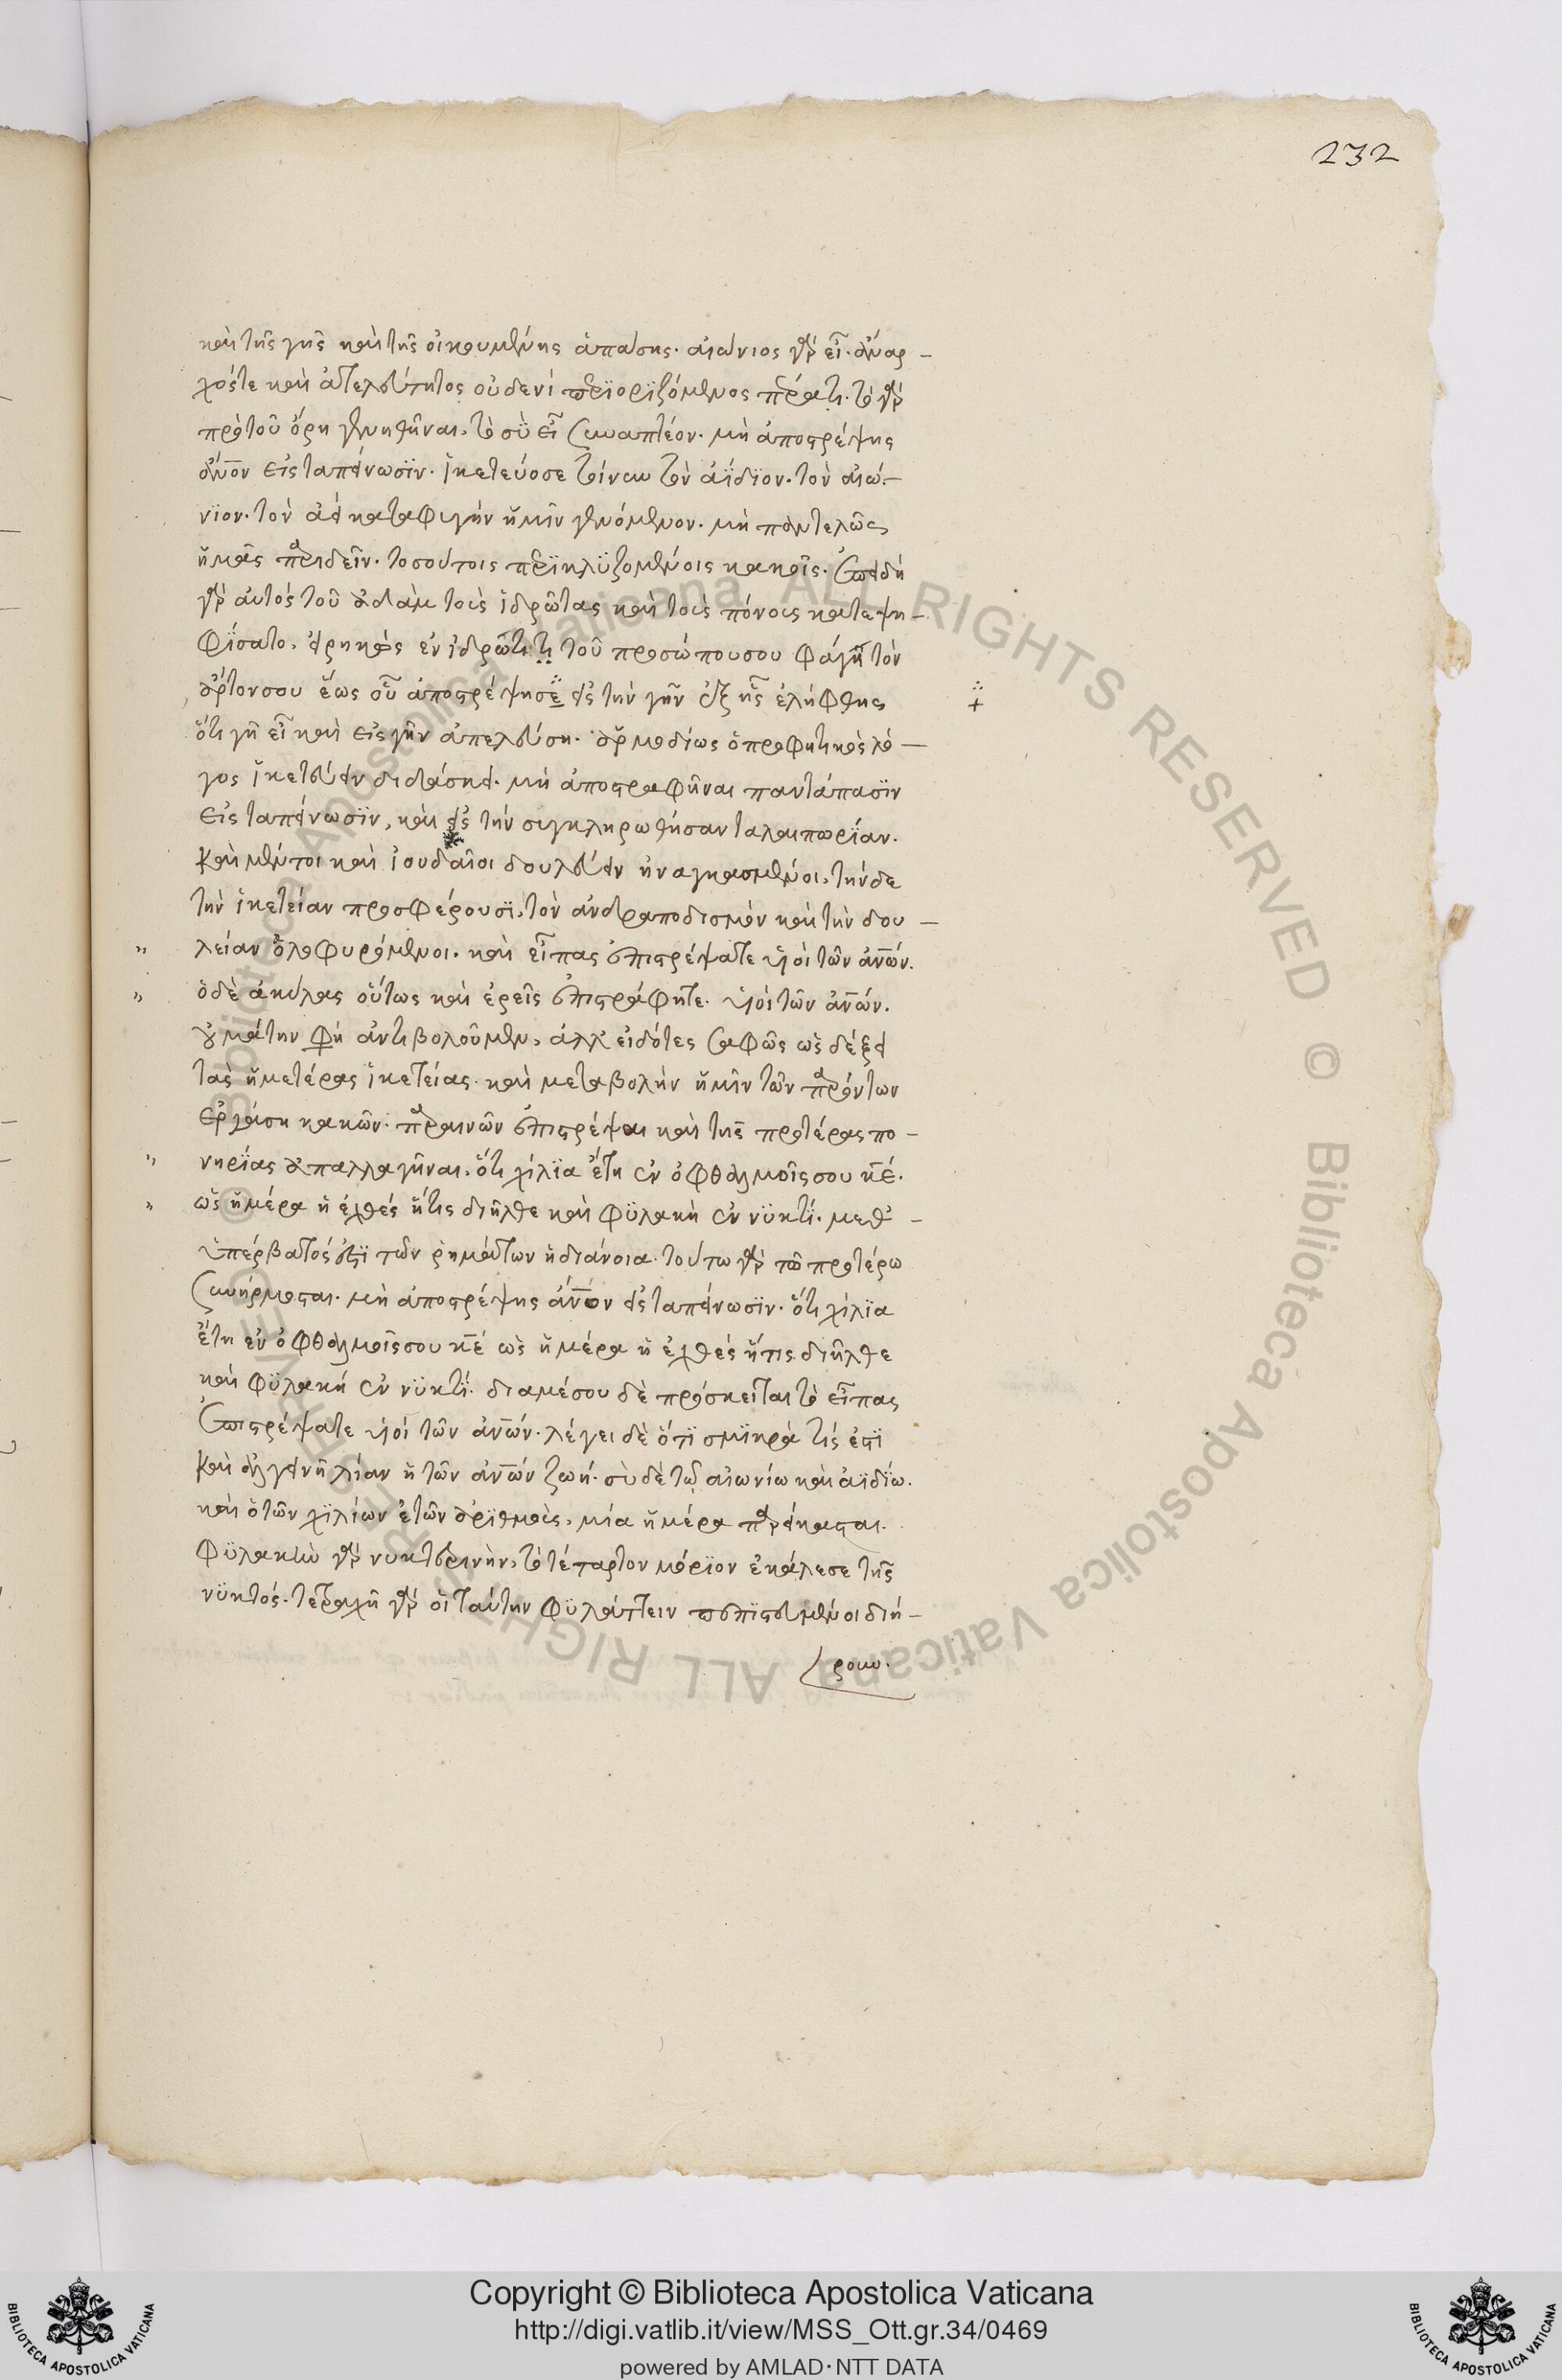 232
καὶ τῆς γῆς καὶ τῆς οἰκουμένης ἁπάσης. αἰώνιος γὰρ εἶ. ἄναρ-
χός τε καὶ ἀτελεύτητος οὐδενὶ περιοριζόμενος πέρατι. τὸ γὰρ
πρὸ τοῦ ὄρη γενηθῆναι, τὸ σὺ εἶ συναπτέον. μὴ ἀποστρέψης
ἄνον εἰς ταπείνωσϊν. ἱκετεύοσε τοίνυν τὸν ἀΐδϊον. τὸν αἰώ-
νϊον. τὸν ἀεὶ καταφυγὴν ἡμῖν γενόμενον. μὴ παντελῶς
ἡμᾶς παριδεῖν. τοσούτοις περϊκλϋζομένοις κακοῖς. ἐπειδὴ
γὰρ αὐτὸς τοῦ ἀδὰμ τοὺς ἱδρῶτας καὶ τοὺς πόνους κατεψη-
φΐσατο, εἰρηκὼς ἐν ἱδρῶτι τι τοῦ προσώπου σου φάγη τὸν
ἄρτον σου ἕως οὗ ἀποστρέψησε εἰς τὴν γῆν ἐξ ἧς ἐλήφθης
ὅτι γῆ εἶ καὶ εἰς γῆν ἀπελεύση. ἁρμοδίως ὁ προφητικὸς λό-
γος ἱκετεύειν διδάσκει. μὴ ἀποστραφῆναι παντάπασϊν
εἰς ταπείνωσϊν, καὶ εἰς τὴν συγκληρωθήσαν ταλαιπωρίαν.
καὶ μέντοι καὶ ἰουδαῖοι δουλεύειν ἠναγκασμένοι, τήνδε
τὴν ἱκετείαν προσφέρουσϊ, τὸν ἀνδραποδισμὸν καὶ τὴν δου-
" λείαν ὀλοφυρόμενοι. καὶ εἶπας ἐπιστρέψατε υἱοὶ τῶν ἀνῶν.
" ὁ δὲ ἀκύλας οὕτως καὶ ἐρεῖς ἐπιστράφητε. υἱοὶ τῶν ἀνῶν.
οὐ μάτην φὴ ἀντιβολοῦμεν, ἀλλ' εἰδότες σαφῶς ὡς δέξει
τὰς ἡμετέρας ἱκετείας. καὶ μεταβολὴν ἡμῖν τῶν παρόντων
ἐργάση κακῶν. παραινῶν ἐπιστρέψαι καὶ τῆς προτέρας πο-
" νηρίας ἀπαλλαγῆναι. ὅτι χίλϊα ἔτη ἐν ὀφθαλμοῖς σου κε.
" ὡς ἡμέρα ἡ ἐχθές ἥτις διῆλθε καὶ φϋλακὴ ἐν νϋκτΐ. μεθ-
ὑπέρβατός ἐστϊ τῶν ῥημάτων ἡ διάνοια. τούτω γὰρ τῶ προτέρω
συνήρμοσται. μὴ ἀποστρέψης ἄνον εἰς ταπείνωσϊν. ὅτι χίλϊα
ἔτη ἐν ὀφθαλμοῖς σου κε ὡς ἡμέρα ἡ ἐχθές ἥτις διῆλθε
καὶ φϋλακή ἐν νϋκτΐ. διαμέσου δὲ πρόσκειται τὸ εἶπας
ἐπιστρέψατε υἱοὶ τῶν ἀνῶν. λέγει δὲ ὅτϊ σμϊκρά τίς ἐστϊ
καὶ ἀλγεινῆ λίαν ἡ τῶν ἀνῶν ζωή. σὺ δὲ τῶ αἰωνίω καὶ ἀϊδΐω.
καὶ ὁ τῶν χϊλίων ἐτῶν ἀρϊθμὸς, μία ἡμέρα παρείκασται.
φϋλακὴν γὰρ νυκτερινὴν, τὸ τέταρτον μόρϊον ἐκάλεσε τῆς
νϋκτός. τετραχῆ γὰρ οἱ ταύτην φϋλάττειν πεπϊστευμένοι διή-
ρουν.
Copyright © Biblioteca Apostolica Vaticana
http://digi.vatlib.it/view/MSS_Ott.gr.34/0469
powered by AMLAD·NTT DATA